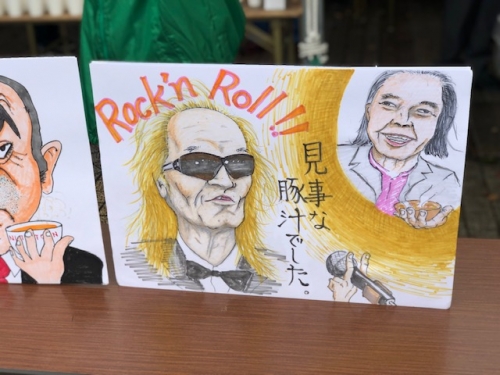 Rock'n Roll!!
見事な
豚汁でした。